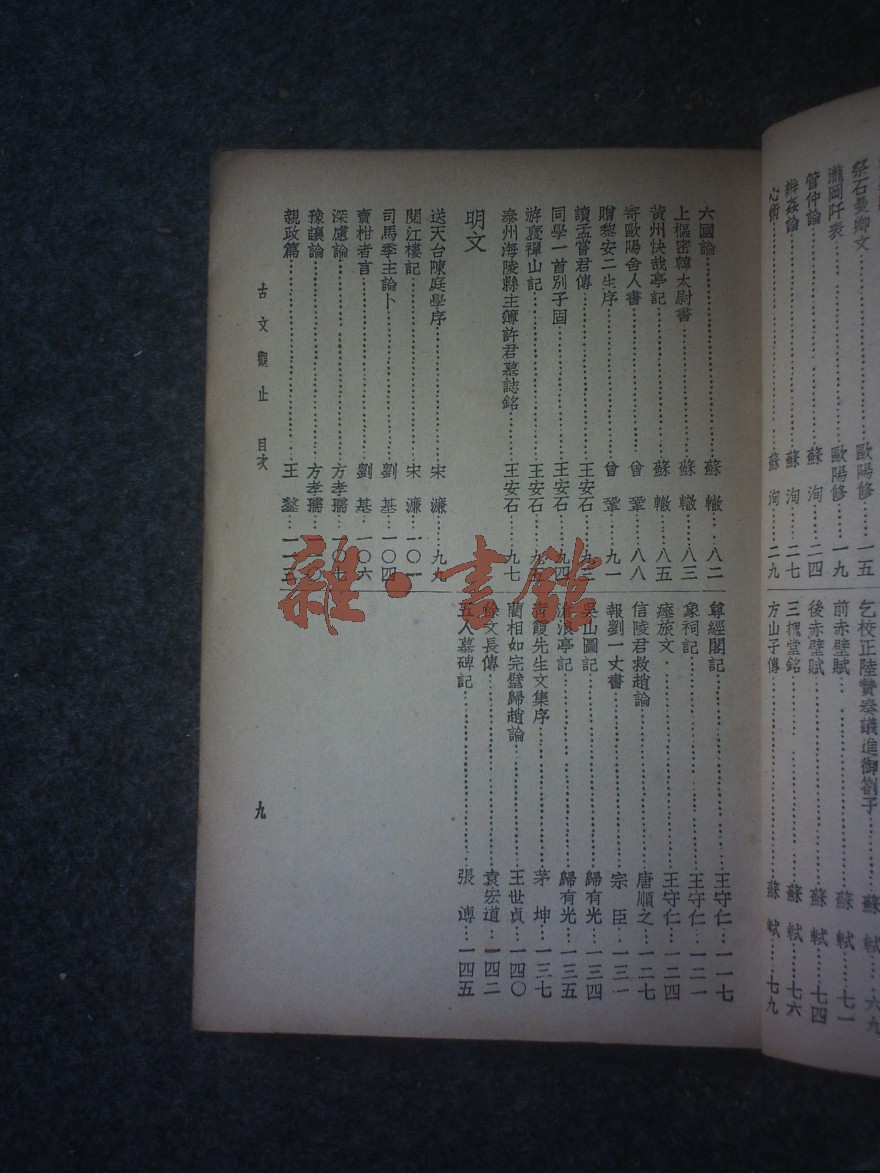 祭石曼卿文 歐陽修 一五
瀧岡阡表 歐陽修 一九
管仲論 蘇洵 二四
辨姦論 蘇洵 二七
心術 蘇洵 二九
乞校正陸贄奏議進御劄子 蘇軾 六九
前赤壁賦 蘇軾 七一
後赤壁賦 蘇軾 七四
三槐堂銘 蘇軾 七六
方山子傳 蘇軾 七九
六國論 蘇轍 八二
上樞密韓太尉書 蘇轍 八三
黃州快哉亭記 蘇轍 八五
寄歐陽舍人書 曾鞏 八八
贈黎安二生序 曾鞏 九一
讀孟嘗君傳 王安石 九三
同學一首別子固 王安石 九四
游褒禪山記 王安石 九五
泰州海陵縣主簿許君墓誌銘 王安石 九七
明文
送天台陳庭學序 宋濂 九九
閱江樓記 宋濂 一〇一
司馬季主論卜 劉基 一〇四
賣柑者言 劉基 一〇六
深慮論 方孝孺 一〇七
豫讓論 方孝孺 一一〇
親政篇 王鏊 一一三
尊經閣記 王守仁 一一七
象祠記 王守仁 一二一
瘞旅文 王守仁 一二四
信陵君救趙論 唐順之 一二七
報劉一丈書 宗臣 一三一
吳山圖記 歸有光 一三四
滄浪亭記 歸有光 一三五
青霞先生文集序 茅坤 一三七
藺相如完璧歸趙論 王世貞 一四〇
徐文長傳 袁宏道 一四二
五人墓碑記 張溥 一四五
古文觀止 目次
九
雜·書館